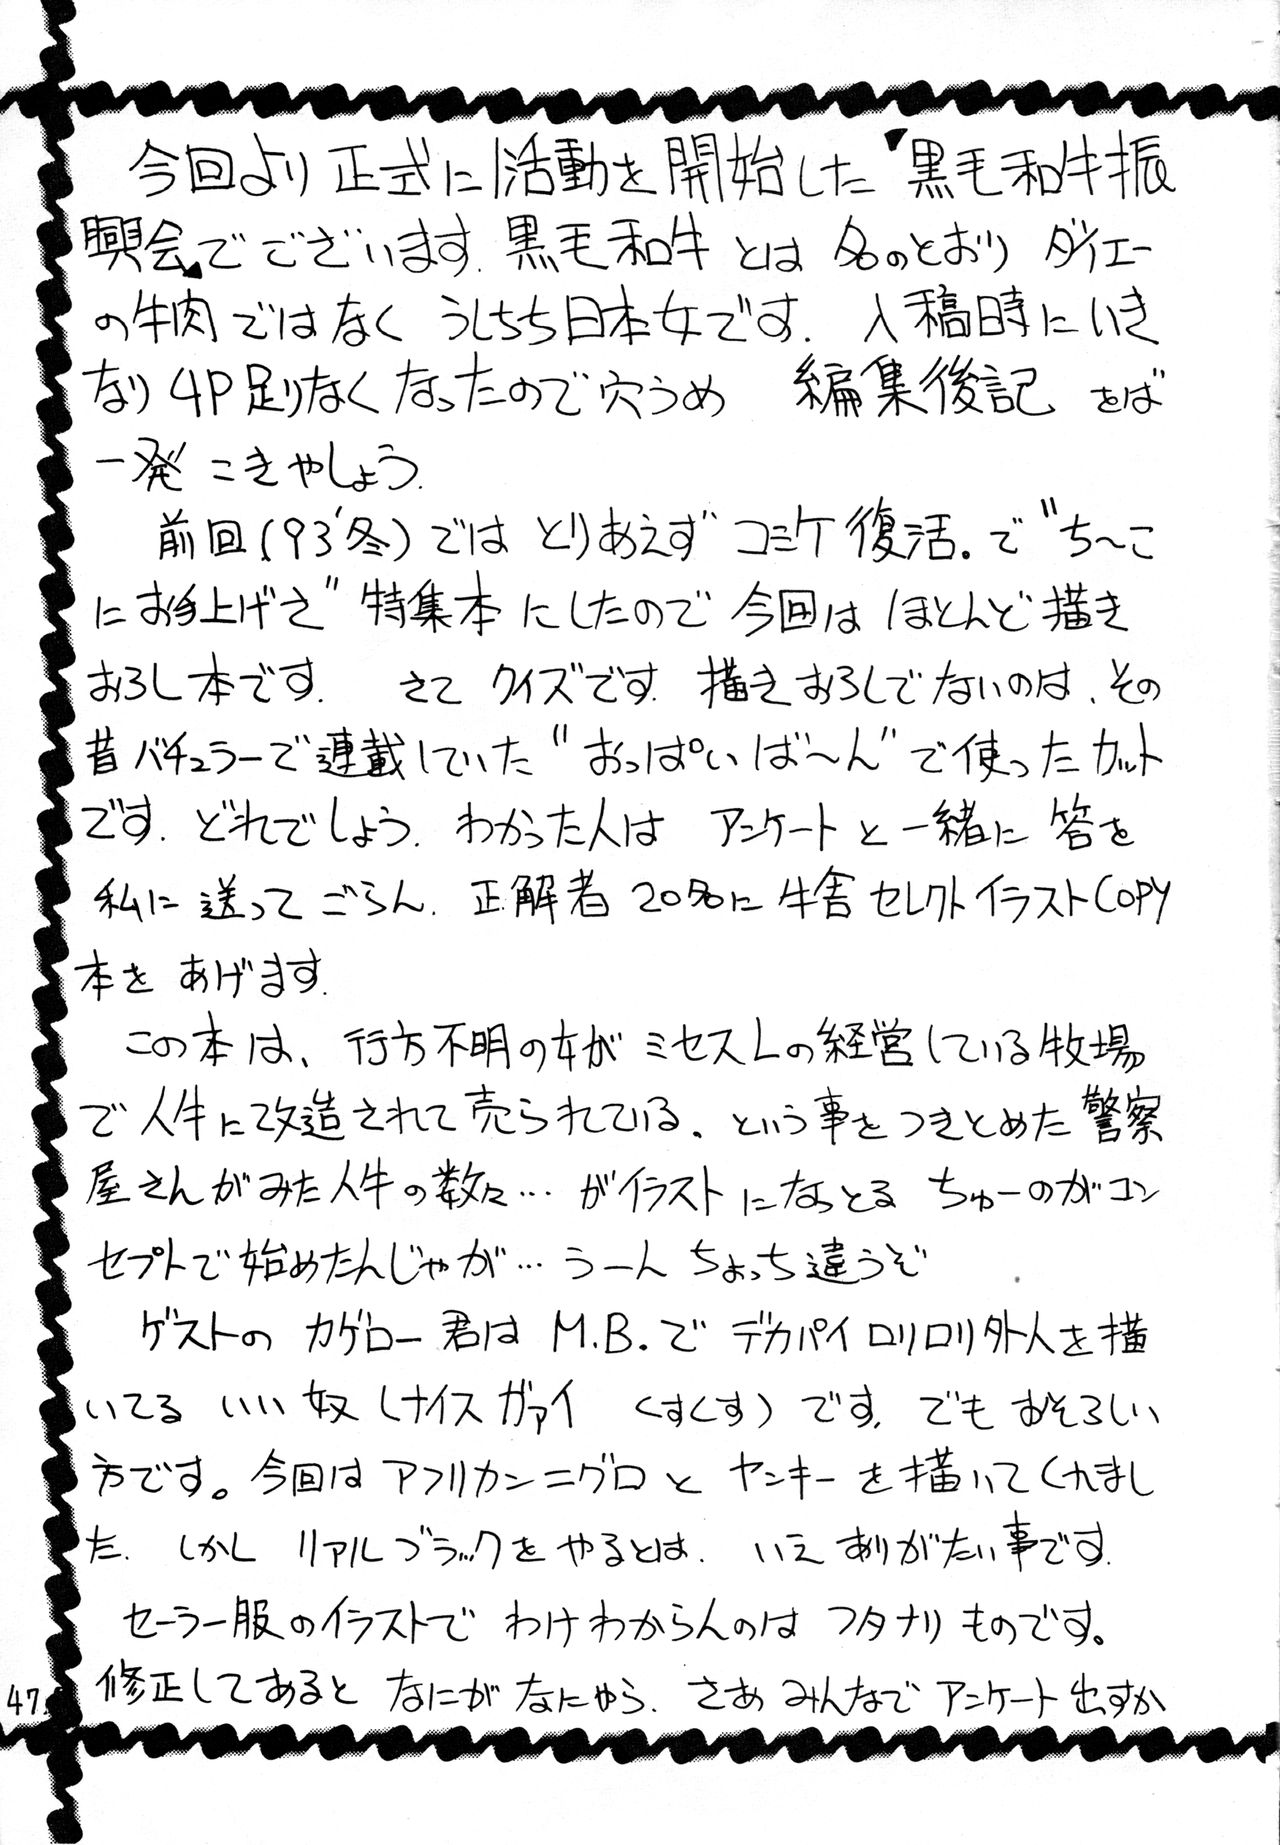 今回より正式に活動を開始した"黒毛和牛振
興会"でございます. 黒毛和牛とは名のとおりダイエー
の牛肉ではなくうしちち日本女です. 入稿時にいき
なり4P足りなくなったので穴うめ 編集後記をば
一発こきやしょう.
前回(93'冬)ではとりあえずコミケ復活。で"ち〜こ
にお手上げさ"特集本にしたので今回はほとんど描き
おろし本です. さてクイズです. 描きおろしでないのは、その
昔バチェラーで連載していた"おっぱいば〜ん"で使ったカット
です. どれでしょう. わかった人はアンケートと一緒に答を
私に送ってごらん. 正解者20名に牛舎セレクトイラストCOPY
本をあげます.
この本は、行方不明の女がミセスLの経営している牧場
で人牛に改造されて売られている、という事をつきとめた警察
屋さんがみた人牛の数々…がイラストになっとるちゅーのがコン
セプトで始めたんじゃが…うーんちょっち違うぞ
ゲストのカゲロー君はM.B.でデカパイロリロリ外人を描
いてるいい奴(ナイスガァイ くすくす)です. でもおそろしい
方です。今回はアフリカンニグロとヤンキーを描いてくれまし
た. しかしリアルブラックをやるとは. いえありがたい事です.
セーラー服のイラストでわけわからんのはフタナリものです。
修正してあるとなにがなにやら. さあみんなでアンケート出すか
47.